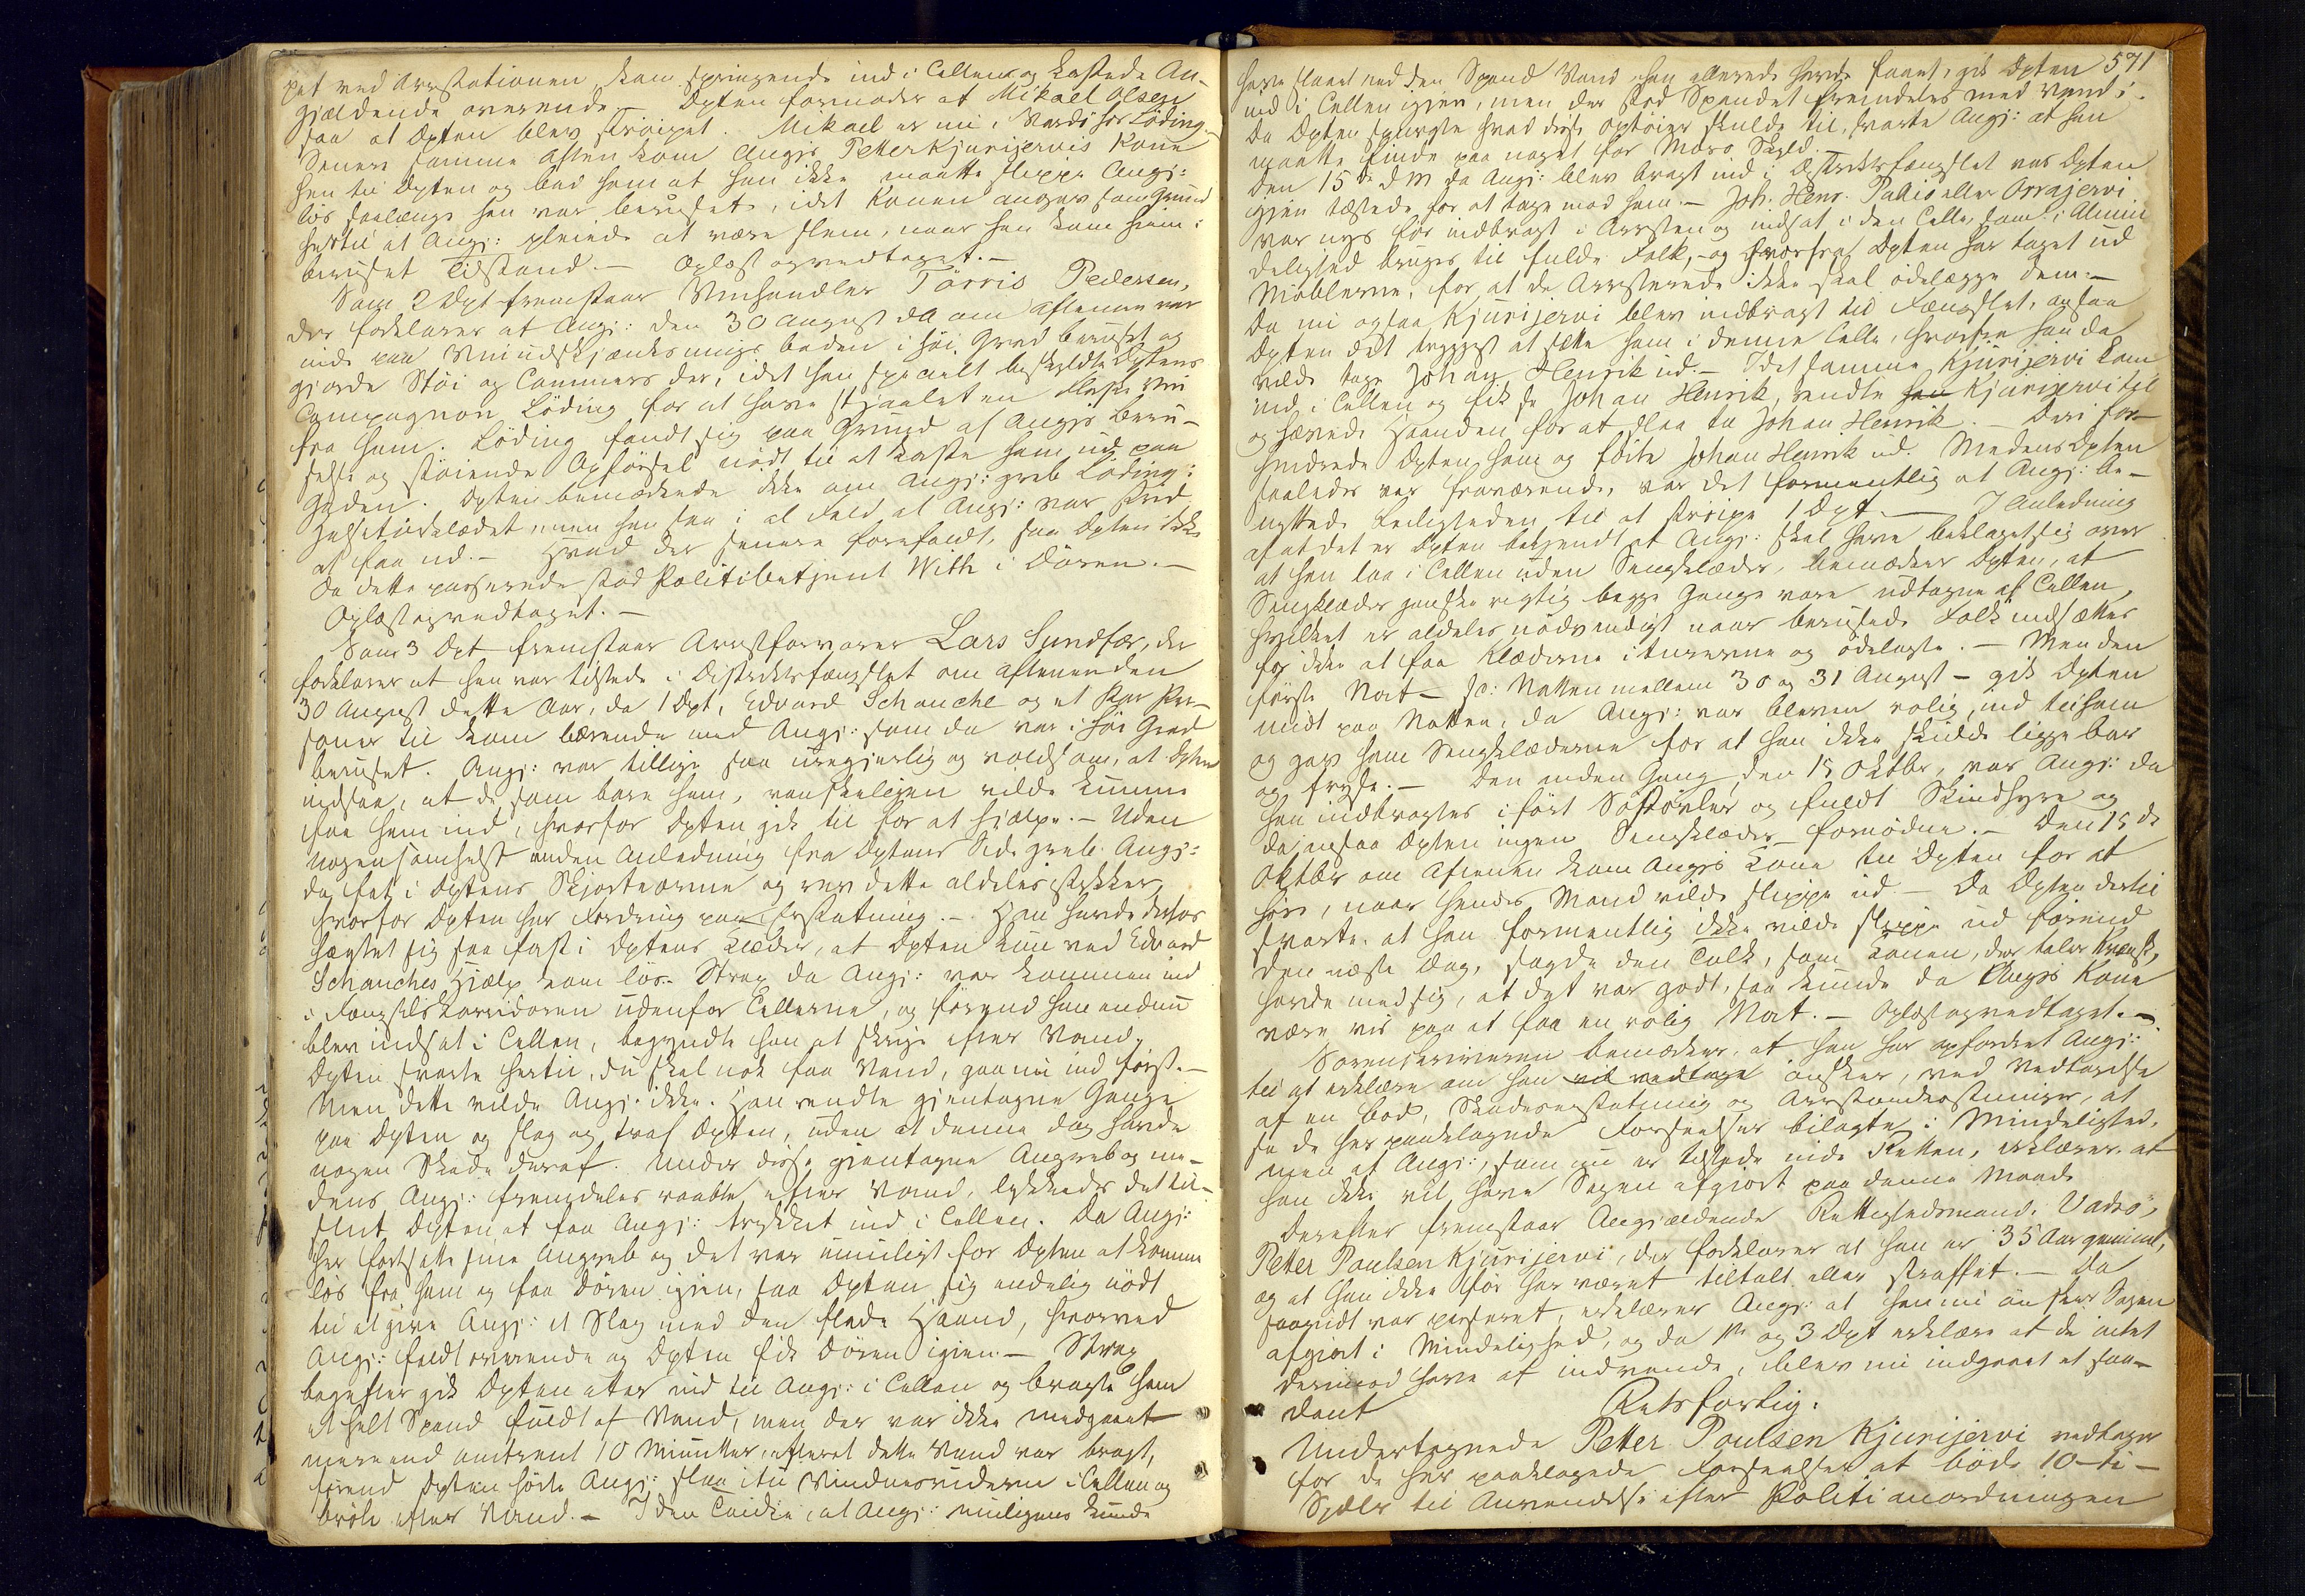 pet ved Arrestationen kom springende ind i Cellen og kastede An-
gjældende overende. – Dpten formoder at Mikael Olsen
saa at Dpten blev strøipet. Mikael er nu i Vardø hos Löding.
Senere samme Aften kom Angjs Petter Kjurijervis Kone
hen til Dpten og bad ham at han ikke maatte slippe Angj:
lös saalænge han var beruset, idet Konen angav som Grund
hertil at Angj: pleiede at være slem, naar han kom hjem i
beruset Tilstand. – Oplæst og vedtaget. –
Som 2 Dpt fremstaar Vinhandler Törris Pedersen,
der forklarer at Angj: den 30 August d A om Aftenen var
inde paa Vinudskjænkningsboden i höi Grad beruset og
gjorde Stöi og Commers der, idet han specielt beskyldte Dptens
Compagnon Löding for at have stjaalet en Flaske Vin
fra ham. Löding fandt sig paa Grund af Angjs beru-
selse og stöiende Opförsel nödt til at kaste ham ud paa
Gaden. Dpten bemærkede ikke om Angj: greb Löding i
Halstörklædet, men han saa i al Fald at Angj: var vred
at faa ud. – Hvad der senere forefaldt, saa Dpten ikke
Da dette passerede stod Politibetjent With i Dören. –
Oplæst og vedtaget. –
Som 3 Dpt fremstaar Arrestforvarer Lars Sundfær, der
forklarer at han var tilstede i Distriktsfængslet om Aftenen den
30 August dette Aar, da 1 Dpt, Edvard Schanche og et Par Per-
soner til kom bærende med Angj: som da var i höi Grad
beruset. Angj: var tillige saa uregjerlig og voldsom, at Dpten
indsaa, at de, som bare ham, vanskeligen vilde kunne
faa ham ind, hvorfor Dpten gik til for at hjælpe. – Uden
nogensomhelst anden Anledning fra Dptens Side greb Angj:
da fat i Dptens Skjorteærme og rev dette aldeles istykker,
hvorfor Dpten har Fordring paa Erstatning. – Han havde derhos
hægtet sig saa fast i Dptens Klæder, at Dpten kun ved Edvard
Schanches Hjælp kom lös. Strax da Angj: var kommen ind
i Fængselskorridoren udenfor Cellerne, og förend han endnu
blev indsat i Cellen, begyndte han at skrige efter Vand.
Dpten svarte hertil, du skal nok faa Vand, gaa nu ind först. –
Men dette vilde Angj: ikke. Han rendte gjentagne Gange
paa Dpten og slog og traf Dpten, uden at denne dog havde
nogen Skade deraf. Under disse gjentagne Angreb og me-
dens Angj: fremdeles raabte efter Vand, lykkedes det til-
slut Dpten at faa Angj: trykket ind i Cellen. Da Angj:
her fortsatte sine Angreb og det var umuligt for Dpten at komme
lös fra ham og faa Dören igjen, saa Dpten sig endelig nödt
til at give Angj: et Slag med den flade Haand, hvorved
Angj: faldt overende og Dpten fik Dören igjen. – Strax
bagefter gik Dpten atter ind til Angj: i Cellen og bragte ham
et helt Spand fuldt af Vand, men der var ikke medgaaet
mere end omtrent 10 Minutter, efterat dette Vand var bragt,
förend Dpten hörte Angj: slaa itu Vinduesruderne i Cellen og
bröle efter Vand. – I den Tanke, at Angj: muligens kunde
571
have slaaet ned den Spand Vand han allerede havde faaet, gik Dpten
ind i Cellen igjen, men der stod Spandet fremdeles med Vand i.
Da Dpten spurgte hvad disse Optöier skulde til, svarte Angj: at han
maatte finde paa noget for Moro Skyld.
Den 15de d M da Angj: blev bragt ind i Distriktsfængslet var Dpten
igjen tilstede for at tage mod ham. – Joh. Henr. Pakis eller Orrajervi
var nys för indbragt i Arresten og indsat i den Celle, som i Almin
delighed bruges til fulde Folk, – og hvorfra Dpten har taget ud
Möblerne, for at de Arresterede ikke skal ödelægge dem. –
Da nu ogsaa Kjurijervi blev indbragt til Fængslet, ansaa
Dpten det tryggest at sætte ham i denne Celle, hvorfra han da
vilde tage Johan Henrik ud. – Idet samme Kjurijervi kom
ind i Cellen og fik se Johan Henrik, rendte han Kjurijervi til
og hævede Haanden for at slaa til Johan Henrik. – Deri for-
hindrede Dpten ham og förte Johan Henrik ud. Medens Dpten
saaledes var fraværende, var det formentlig at Angj: be-
nyttede Leiligheden til at strøipe 1 Dpt. – I Anledning
af at det er Dpten bekjendt at Angj: skal have beklaget sig over
at han laa i Cellen uden Sengklæder, bemærker Dpten, at
Sengklæder ganske rigtig begge Gange vare udtagne af Cellen,
hvilket er aldeles nödvendigt naar berusede Folk indsættes
for ikke at faa Klæderne iturevne og ödelagte. – Men den
förste Nat – ɔ: Natten mellem 30 og 31 August – gik Dpten
midt paa Natten, da Angj: var bleven rolig, ind til ham
og gav ham Sengklæderne for at han ikke skulde ligge bar
og fryse. – Den anden Gang, den 15 Oktbr, var Angj: da
han indbragtes iført Søstövler og fuldt Skindhyre og
da ansaa Dpten ingen Sengklæder fornödne. – Den 15de
Oktbr om Aftenen kom Angjs Kone til Dpten for at
höre, naar hendes Mand vilde slippe ud. – Da Dpten dertil
svarte, at han formentlig ikke vilde slippe ud förend
den næste Dag, sagde den Tolk, som Konen, der taler Kvænsk,
havde med sig, at det var godt, saa kunde da Angjs Kone
være vis paa at faa en rolig Nat. – Oplæst og vedtaget. –
Sorenskriveren bemærker, at han har opfordret Angj:
til at erklære om han vil vedtage önsker, ved Vedtagelse
af en Bod, Skadeserstatning og Arrestomkostninger, at
se de her paaklagede Forseelser bilagte i Mindelighed,
men at Angj:, som nu er tilstede inde Retten, erklærer at
han ikke vil have Sagen afgjort paa denne Maade
Derefter fremstaar Angjældende Rettighedsmand i Vadsö,
Petter Poulsen Kjurijervi, der forklarer at han er 35 Aar gammel,
og at han ikke för har været tiltalt eller straffet. – Da
saavidt var passeret, erklærer Angj: at han nu önsker Sagen
afgjort i Mindelighed, og da 1ste og 3 Dpt erklære at de intet
derimod have at indvende, blev nu indgaaet et saa-
dant Retsforlig:
Undertegnede Petter Poulsen Kjurijervi vedtager
for de her paaklagede Forseelser at böde 10 – ti –
Spdlr til Anvendelse efter Politianordningen